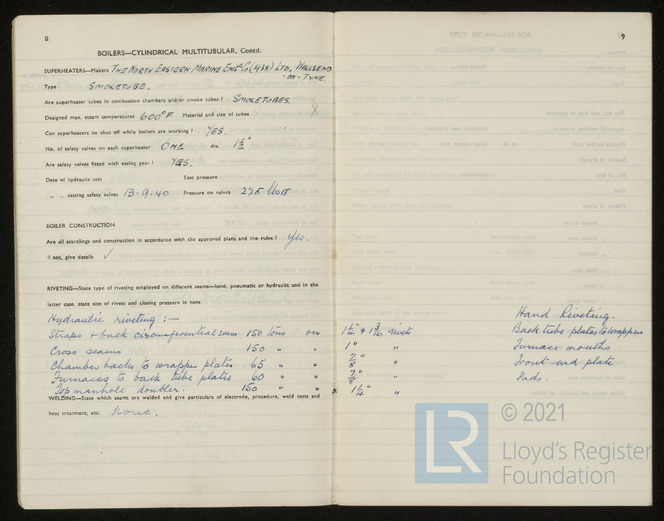 8
BOILERS—CYLINDRICAL MULTITUBULAR, Contd.
SUPERHEATERS—Makers THE NORTH EASTERN MARINE ENGG Co (1938) LTD, WALLSEND
-ON-TYNE
Type SMOKETUBE.
Are superheater tubes in combustion chambers and/or smoke tubes? SMOKETUBES.
Designed max. steam temperatures 600°F Material and size of tubes X
Can superheaters be shut off while boilers are working? YES.
No. of safety valves on each superheater ONE dia. 1½"
Are safety valves fitted with easing gear? YES.
Date of hydraulic test Test pressure
„ „ setting safety valves 13-9-40 Pressure on valves 225 lbs
BOILER CONSTRUCTION
Are all scantlings and construction in accordance with the approved plans and the rules? Yes.
If not, give details ✓
RIVETING—State type of riveting employed on different seams—hand, pneumatic or hydraulic and in the
latter case, state size of rivets and closing pressure in tons
Hydraulic riveting :—
Straps & back circumferential seam 150 tons on
Cross seams 150 " "
Chamber backs to wrapper plates 65 " "
Furnaces to back tube plates 60 " "
Top manhole doubler. 150 " "
WELDING—State which seams are welded and give particulars of electrode, procedure, weld tests and
heat treatment, etc. None.
9
1¼" & 1 3/16 rivets
1" "
7/8" "
7/8" "
1¼" "
Hand Riveting.
Back tube plates to wrappers
Furnace mouths
Front end plate
Pads.
LR
© 2021
Lloyd's Register
Foundation